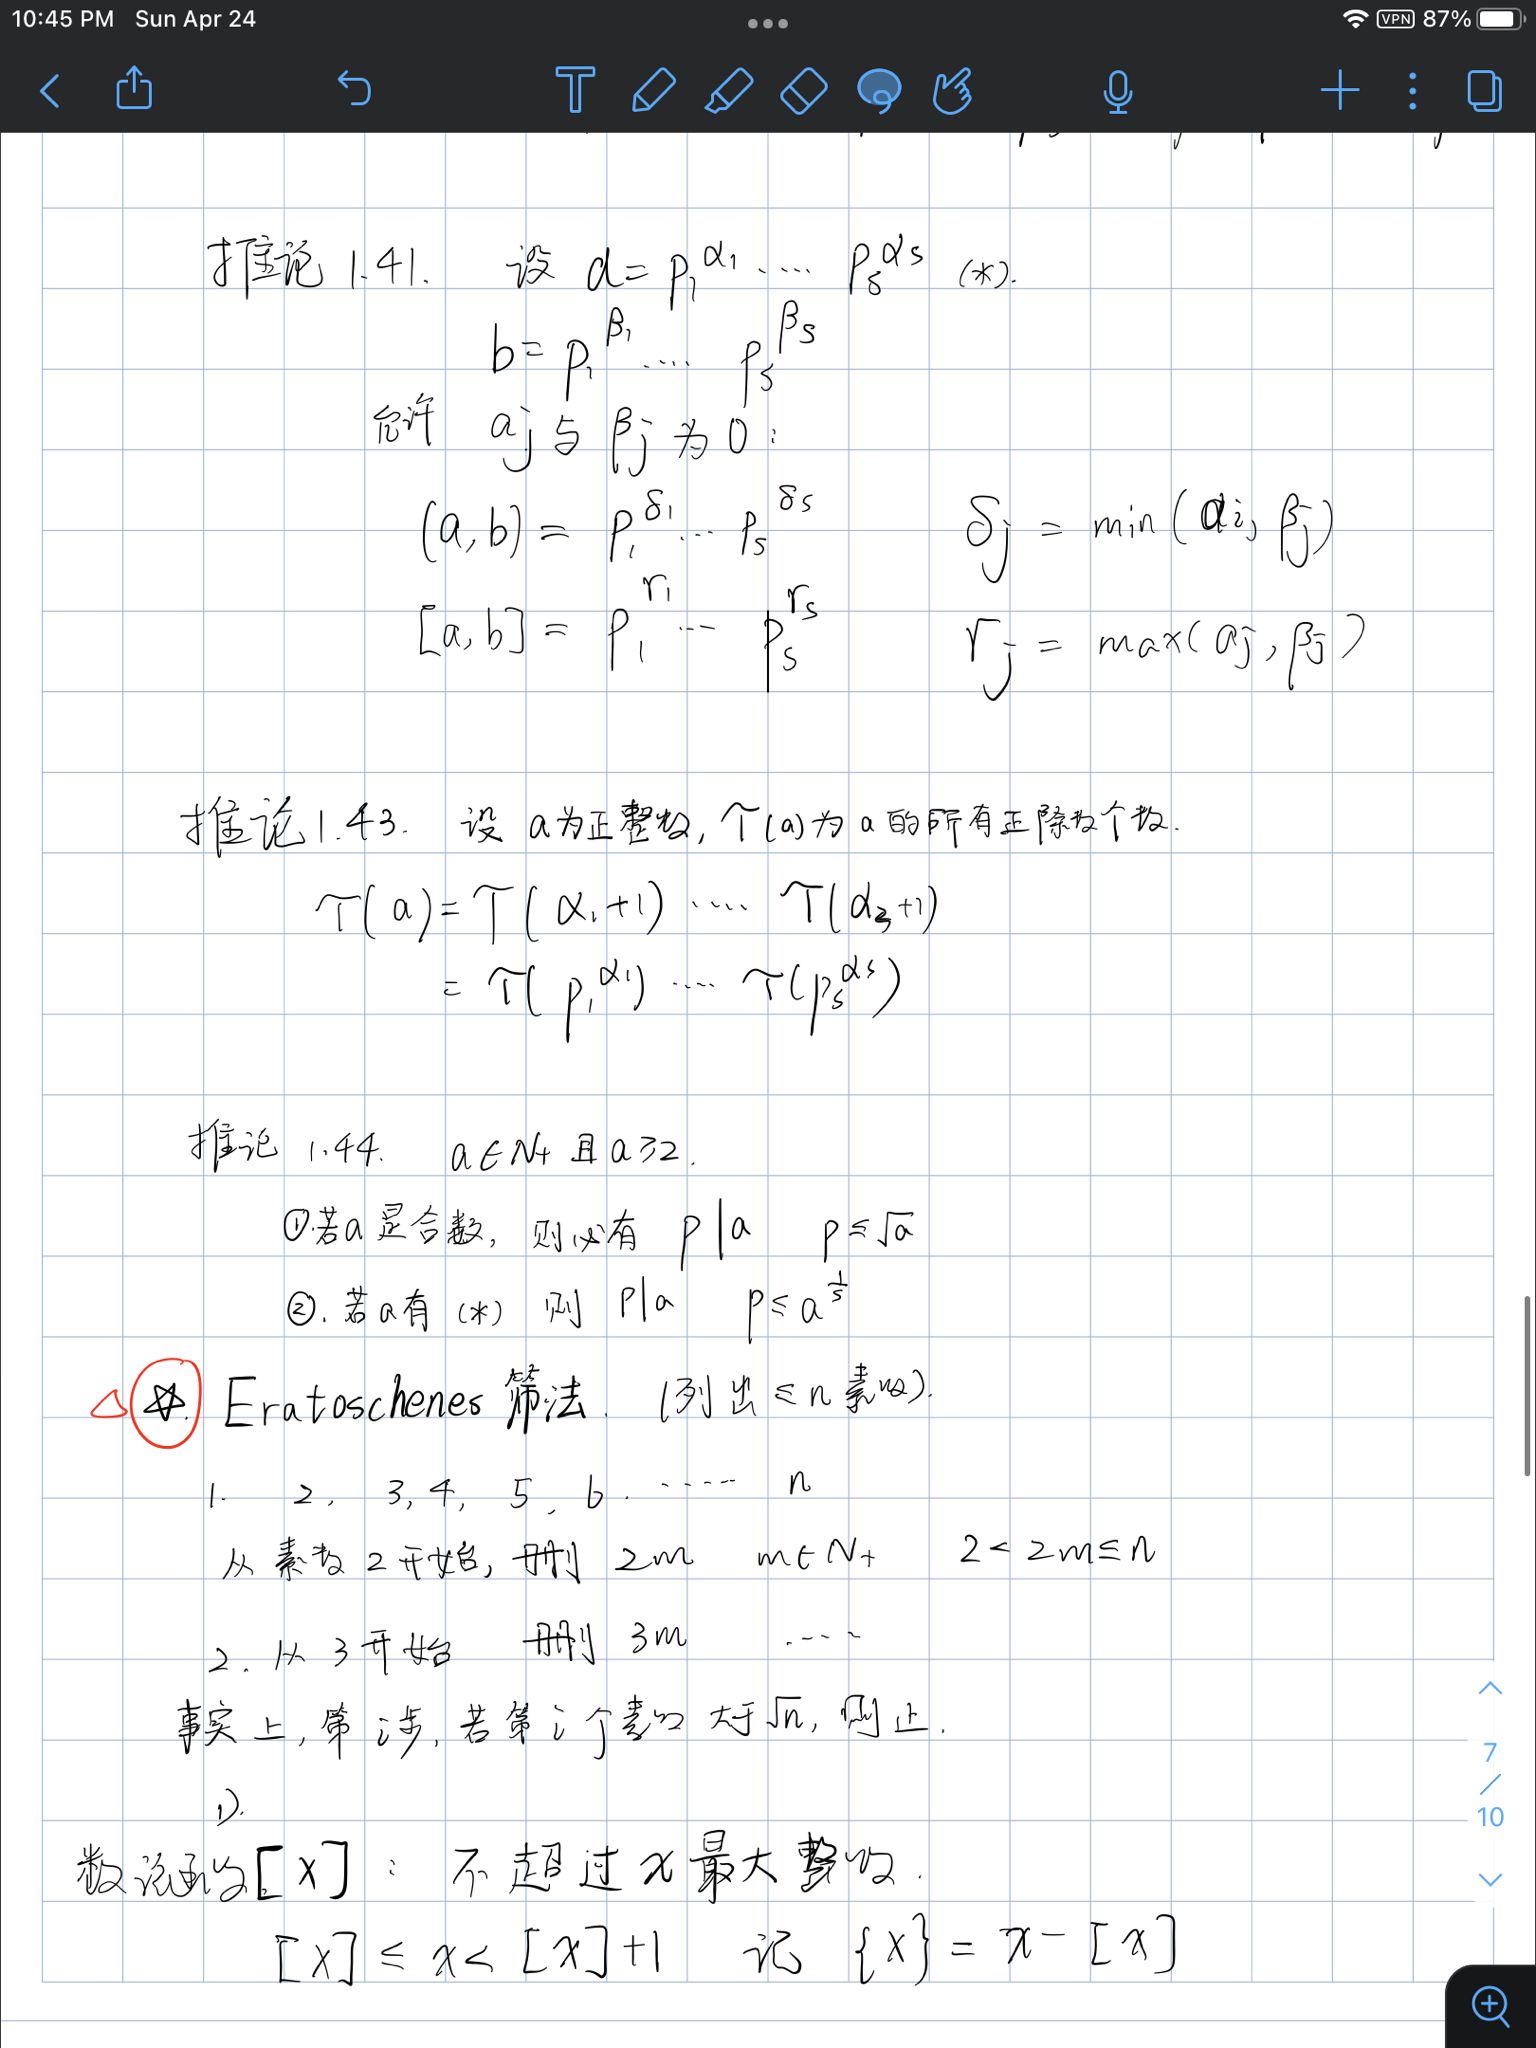 10:45 PM Sun Apr 24
VPN 87%
推论 1.41. 设 a = p₁^α₁ ⋯ pₛ^αₛ (*).
b = p₁^β₁ ⋯ pₛ^βₛ
允许 aj 与 βj 为 0:
(a,b) = p₁^δ₁ ⋯ pₛ^δₛ δj = min(αi, βj)
[a,b] = p₁^r₁ ⋯ pₛ^rₛ rj = max(aj, βj)
推论 1.43. 设 a为正整数, τ(a)为 a 的所有正除数个数.
τ(a) = τ(α₁+1) ⋯ τ(αₛ+1)
= τ(p₁^α₁) ⋯ τ(pₛ^αₛ)
推论 1.44. a∈N₊ 且 a≥2.
①.若a是合数, 则必有 p|a p≤√a
②.若a有 (*) 则 p|a p≤a^(1/s)
☆. Eratoschenes 筛法. (列出 ≤n 素数).
1. 2, 3, 4, 5, 6. ⋯ n
从素数2开始, 删 2m m∈N₊ 2<2m≤n
2. 从 3 开始 删 3m ⋯
事实上, 第 i 步, 若第 i 个素数 大于√n, 则止.
1).
数论函数[x]: 不超过 x 最大整数.
[x] ≤ x < [x]+1 记 {x} = x - [x]
7
/
10